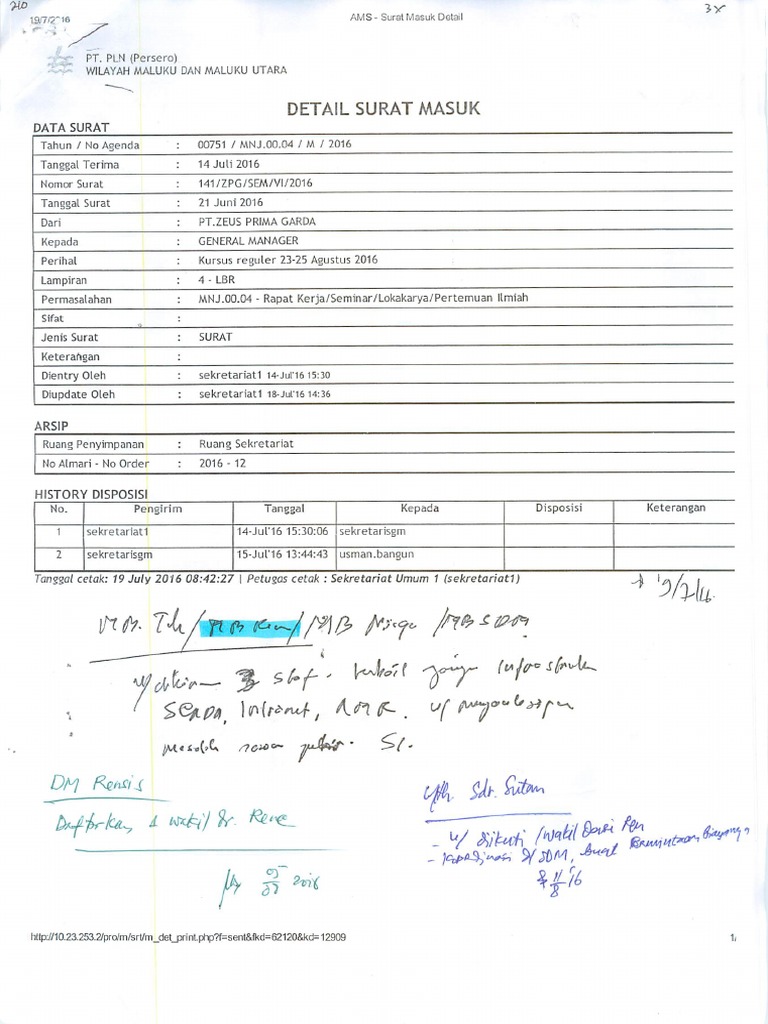 210
3x
19/7/2016 AMS - Surat Masuk Detail
PT. PLN (Persero)
WILAYAH MALUKU DAN MALUKU UTARA
DETAIL SURAT MASUK
DATA SURAT
Tahun / No Agenda : 00751 / MNJ.00.04 / M / 2016
Tanggal Terima : 14 Juli 2016
Nomor Surat : 141/ZPG/SEM/VI/2016
Tanggal Surat : 21 Juni 2016
Dari : PT.ZEUS PRIMA GARDA
Kepada : GENERAL MANAGER
Perihal : Kursus reguler 23-25 Agustus 2016
Lampiran : 4 - LBR
Permasalahan : MNJ.00.04 - Rapat Kerja/Seminar/Lokakarya/Pertemuan Ilmiah
Sifat :
Jenis Surat : SURAT
Keterangan :
Dientry Oleh : sekretariat1 14-Jul'16 15:30
Diupdate Oleh : sekretariat1 18-Jul'16 14:36
ARSIP
Ruang Penyimpanan : Ruang Sekretariat
No Almari - No Order : 2016 - 12
HISTORY DISPOSISI
No. Pengirim Tanggal Kepada Disposisi Keterangan
1 sekretariat1 14-Jul'16 15:30:06 sekretarisgm
2 sekretarisgm 15-Jul'16 13:44:43 usman.bangun
Tanggal cetak: 19 July 2016 08:42:27 | Petugas cetak : Sekretariat Umum 1 (sekretariat1)
19/7/16
MB. Tek / MB Ren / MB Niaga / MB SDM
staf. terkait
SCADA, Intranet, AMR. u/
masalah
DM Rensis
Daftarkan 1 wakil
05 2016
Yth Sdr. Sutan
- u/ diikuti / wakil Dari Ren
- Koordinasi d/ SDM, buat
11/8 '16
http://10.23.253.2/pro/m/srt/m_det_print.php?f=sent&fkd=62120&kd=12909 1/